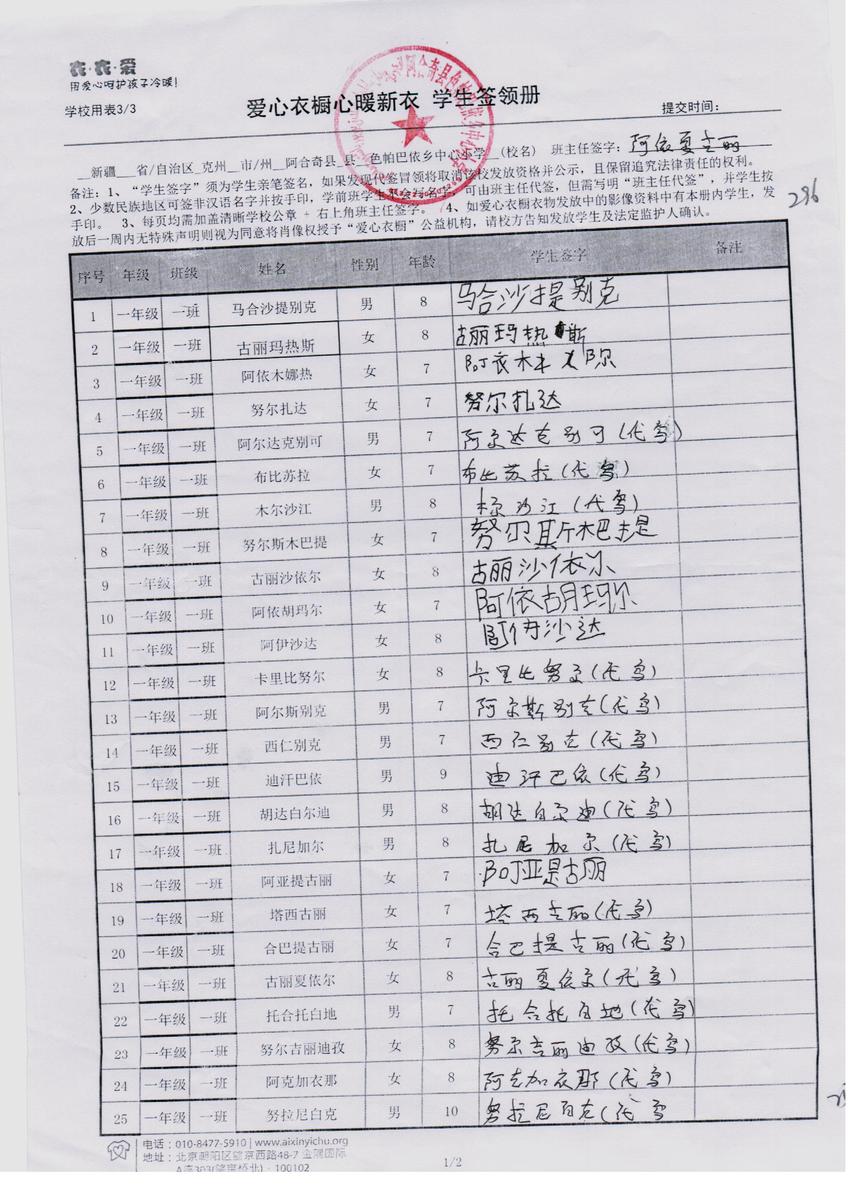 衣·衣·爱
用爱心呵护孩子冷暖!
学校用表3/3
爱心衣橱心暖新衣 学生签领册
提交时间:
新疆 省/自治区 克州 市/州 阿合奇县 县 色帕巴依乡中心小学 (校名) 班主任签字: 阿依夏古丽
备注: 1、“学生签字”须为学生亲笔签名, 如果发现代签冒领将取消该校发放资格并公示, 且保留追究法律责任的权利。
2、少数民族地区可签非汉语名字并按手印, 学前班学生不会写名字, 可由班主任代签, 但需写明“班主任代签”, 并学生按
手印。 3、每页均需加盖清晰学校公章 + 右上角班主任签字。 4、如爱心衣橱衣物发放中的影像资料中有本册内学生, 发
放后一周内无特殊声明则视为同意将肖像权授予“爱心衣橱”公益机构, 请校方告知发放学生及法定监护人确认。
296
序号 年级 班级 姓名 性别 年龄 学生签字 备注
1 一年级 一班 马合沙提别克 男 8 马合沙提别克
2 一年级 一班 古丽玛热斯 女 8 古丽玛热斯
3 一年级 一班 阿依木娜热 女 7 阿衣木
4 一年级 一班 努尔扎达 女 7 努尔扎达
5 一年级 一班 阿尔达克别可 男 7 阿尔达克别可(代写)
6 一年级 一班 布比苏拉 女 7 布比苏拉(代写)
7 一年级 一班 木尔沙江 男 8 沙江(代写)
8 一年级 一班 努尔斯木巴提 女 7 努尔斯木巴提
9 一年级 一班 古丽沙依尔 女 8 古丽沙依尔
10 一年级 一班 阿依胡玛尔 女 7 阿依胡玛尔
11 一年级 一班 阿伊沙达 女 8 阿伊沙达
12 一年级 一班 卡里比努尔 女 8 卡里比努尔(代写)
13 一年级 一班 阿尔斯别克 男 7 阿尔斯别克(代写)
14 一年级 一班 西仁别克 男 7 西仁别克(代写)
15 一年级 一班 迪汗巴依 男 9 迪汗巴依(代写)
16 一年级 一班 胡达白尔迪 男 8 胡达白尔迪(代写)
17 一年级 一班 扎尼加尔 男 8 扎尼加尔(代写)
18 一年级 一班 阿亚提古丽 女 7 阿亚是古丽
19 一年级 一班 塔西古丽 女 7 塔西古丽(代写)
20 一年级 一班 合巴提古丽 女 7 合巴提古丽(代写)
21 一年级 一班 古丽夏依尔 女 8 古丽夏依尔(代写)
22 一年级 一班 托合托白地 男 7 托合托白地(代写)
23 一年级 一班 努尔吉丽迪孜 女 8 努尔吉丽迪孜(代写)
24 一年级 一班 阿克加衣那 女 8 阿克加衣那(代写)
25 一年级 一班 努拉尼白克 男 10 努拉尼白克(代写
电话: 010-8477-5910 | www.aixinyichu.org
地址: 北京朝阳区望京西路48-7 金隅国际
1/2